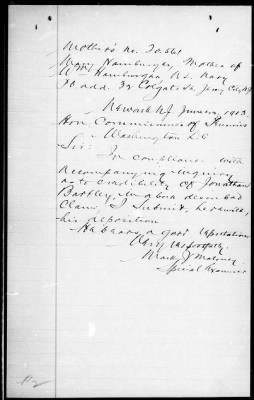 Mother's No. 20561
Mary Hamburger, Mother of
Wm Hamburger, U.S. Navy
P.O. add. 32 Colgate St. Jersey City NJ
Newark NJ 1903.
Hon. Commissioner of Pensions
Washington D.C.
Sir:
In compliance with
accompanying inquiry
as to credibility of Jonathan
Bartley, in above described
claim, I submit, herewith,
his deposition
He bears a good reputation
Very respectfully,
J. Maloney
Special Examiner